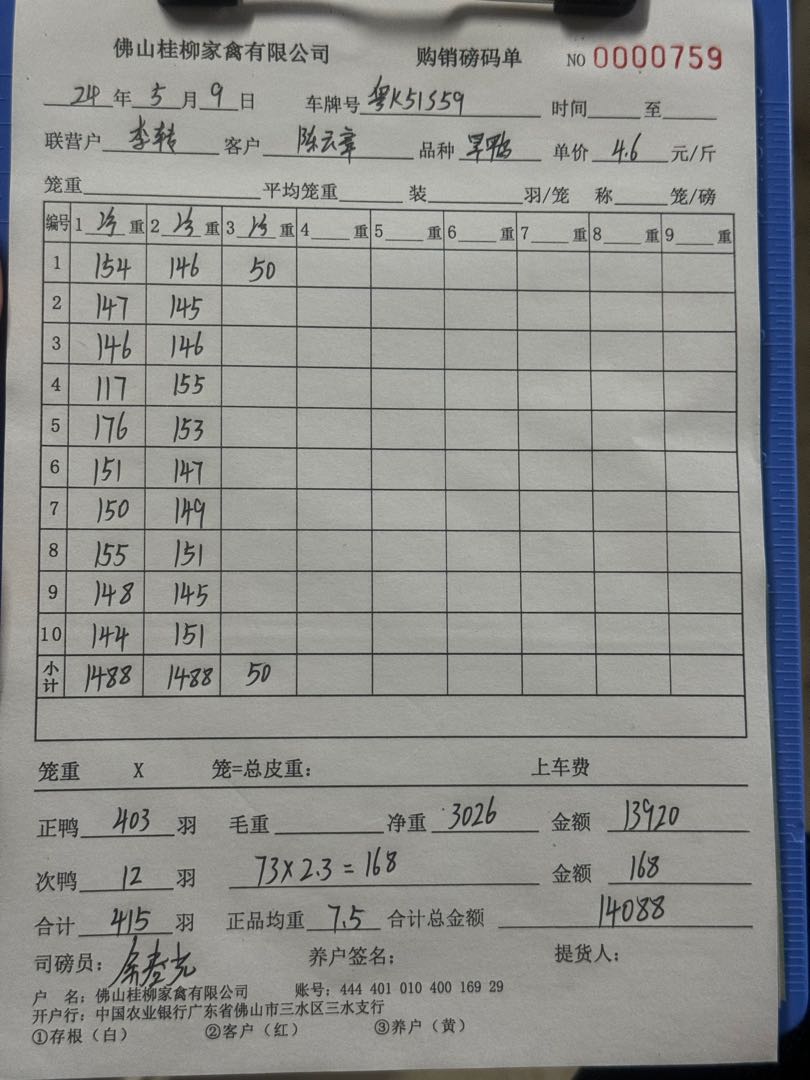 佛山桂柳家禽有限公司 购销磅码单 NO 0000759
24年5月9日 车牌号 粤K51S59 时间 至
联营户 李转 客户 陈云章 品种 旱鸭 单价 4.6 元/斤
笼重 平均笼重 装 羽/笼 称 笼/磅
编号 1 净 重 2 净 重 3 净 重 4 重 5 重 6 重 7 重 8 重 9 重
1 154 146 50
2 147 145
3 146 146
4 117 155
5 176 153
6 151 147
7 150 149
8 155 151
9 148 145
10 144 151
小计 1488 1488 50
笼重 X 笼=总皮重: 上车费
正鸭 403 羽 毛重 净重 3026 金额 13920
次鸭 12 羽 73X2.3=168 金额 168
合计 415 羽 正品均重 7.5 合计总金额 14088
司磅员: 养户签名: 提货人:
户 名:佛山桂柳家禽有限公司 账号:444 401 010 400 169 29
开户行:中国农业银行广东省佛山市三水区三水支行
①存根(白) ②客户(红) ③养户(黄)